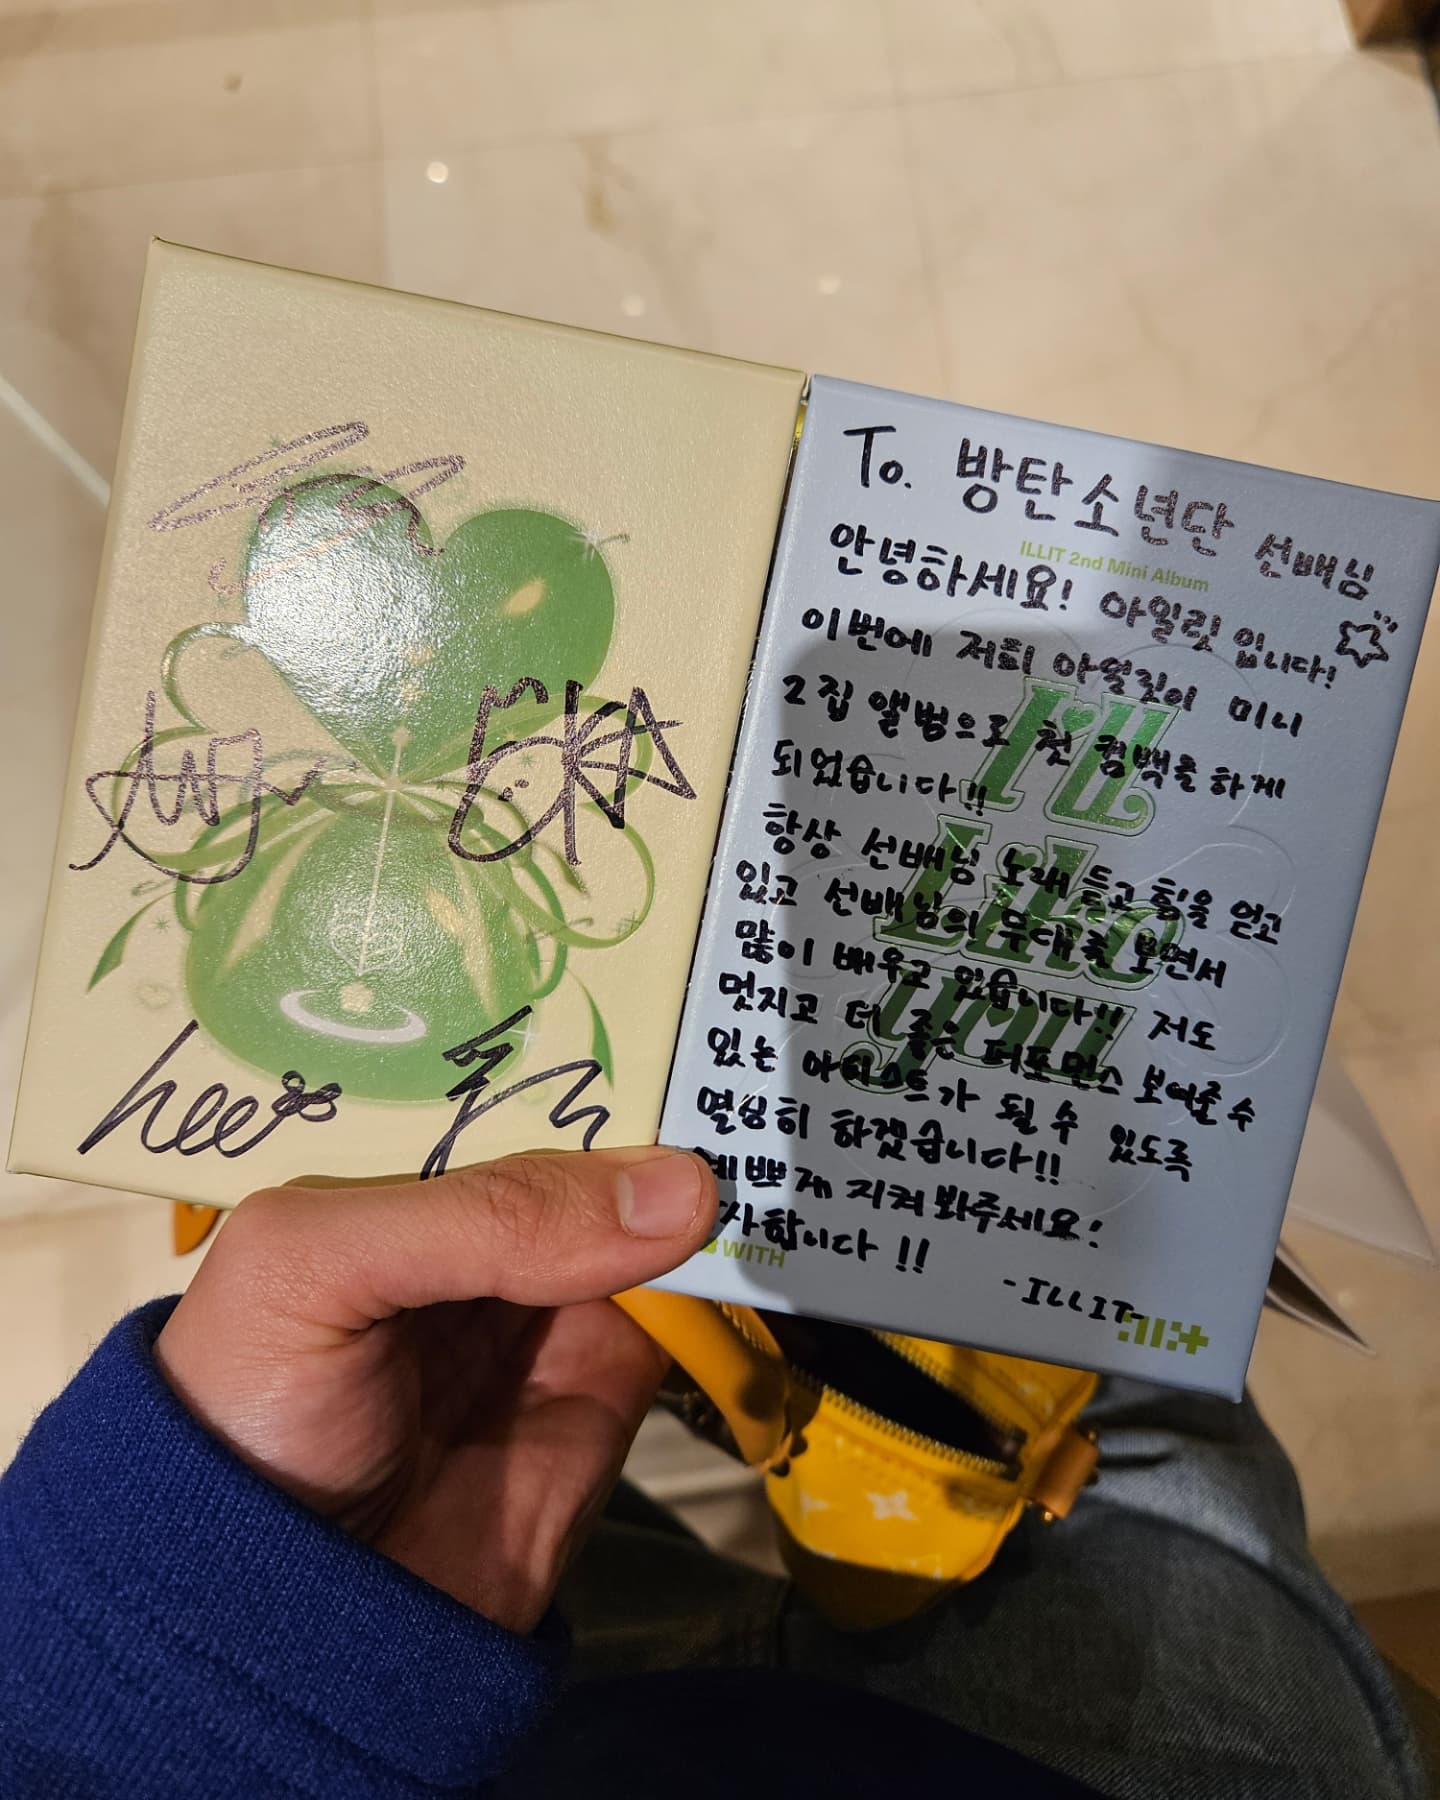 To. 방탄소년단 선배님
ILLIT 2nd Mini Album
안녕하세요! 아일릿 입니다!
이번에 저희 아일릿이 미니
2집 앨범으로 첫 컴백을 하게
되었습니다!!
항상 선배님 노래 듣고 힘을 얻고
있고 선배님의 무대를 보면서
많이 배우고 있습니다!! 저도
멋지고 더 좋은 퍼포먼스 보여줄 수
있는 아티스트가 될 수 있도록
열심히 하겠습니다!!
예쁘게 지켜봐주세요!
사합니다 !!
WITH
-ILLIT-
I'll
Like
you
hee